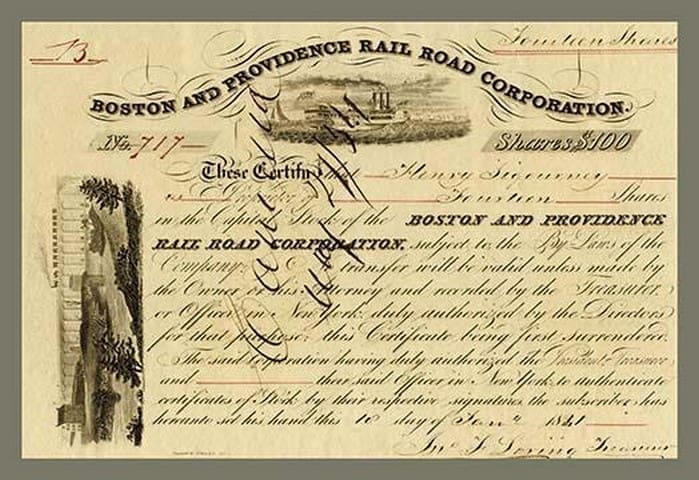 B
Fourteen Shares
BOSTON AND PROVIDENCE RAIL ROAD CORPORATION.
No. 717
Shares, $100
These Certify that Henry Sigourney
is Proprietor of Fourteen Shares
in the Capital Stock of the BOSTON AND PROVIDENCE
RAIL ROAD CORPORATION, subject to the By-Laws of the
Company. transfer will be valid unless made by
the Owner or his Attorney and recorded by the Treasurer
or Officer in New York, duly authorized by the Directors
for that purpose; this Certificate being first surrendered.
The said Corporation having duly authorized the President & Treasurer
and their said Officer in New York to authenticate
certificates of Stock by their respective signatures, the subscriber has
hereunto set his hand this 16 day of Jany 1841
Jno. F. Loring Treasurer